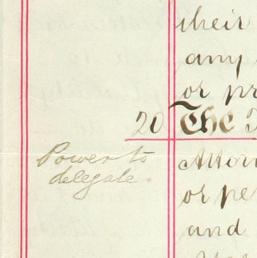 their
any
or pr
20 The
Power to
delegate.
Attor
or pe
and